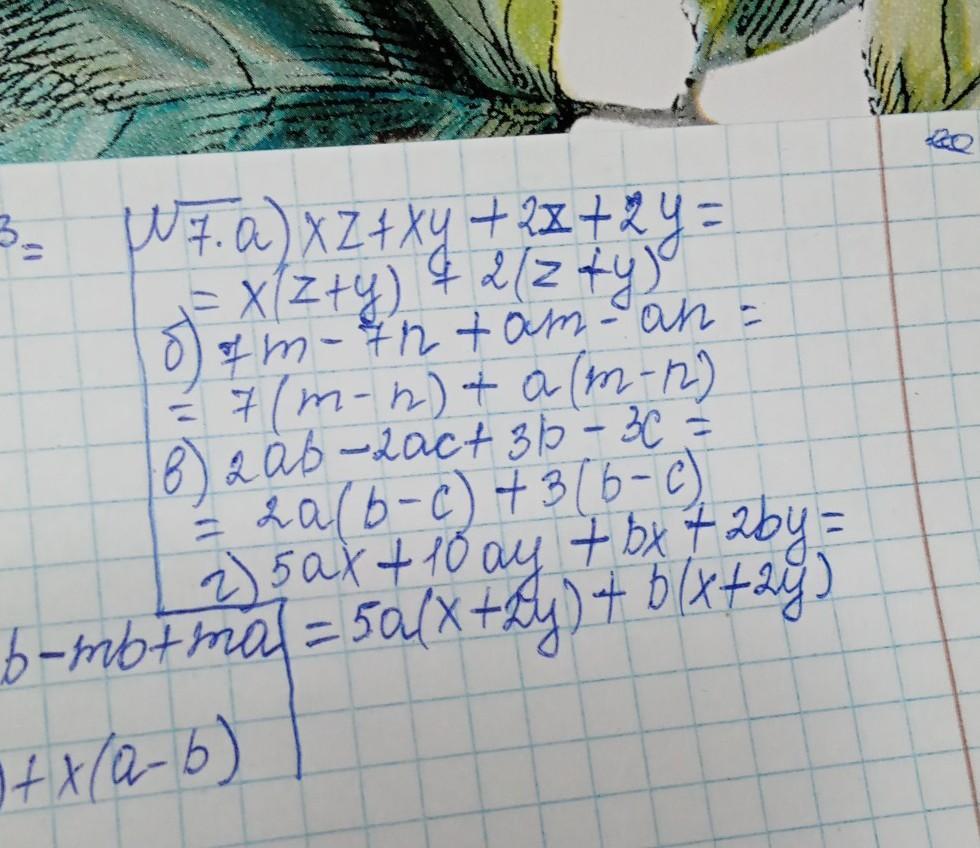 3=
№7. а) xz + xy + 2z + 2y =
= x(z+y) + 2(z+y)
б) 7m - 7n + am - an =
= 7(m-n) + a(m-n)
в) 2ab - 2ac + 3b - 3c =
= 2a(b-c) + 3(b-c)
г) 5ax + 10ay + bx + 2by =
= 5a(x+2y) + b(x+2y)
b - mb + ma
) + x(a-b)